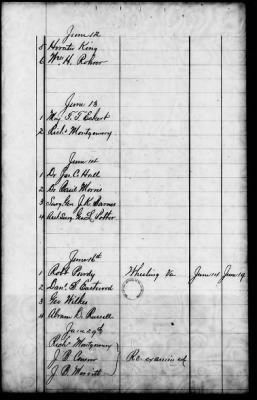 June 12
5 Horatio King
6 Wm. H. Rohrer
June 13
1 Maj T. T. Eckert
2 Richd Montgomery
June 14
1 Dr Jas. C. Hall
2 Dr Basil Norris
3 Surg. Gen J. K. Barnes
4 Asst Surg. Geo L. Porter
June 16th
1 Robt Purdy Wheeling Va June 14 June 19
2 Danl S. Eastwood
3 Geo Wilkes
4 Abram D. Russell
June 29th
Richd Montgomery
J. B.
J. B. Merritt
Re-examined